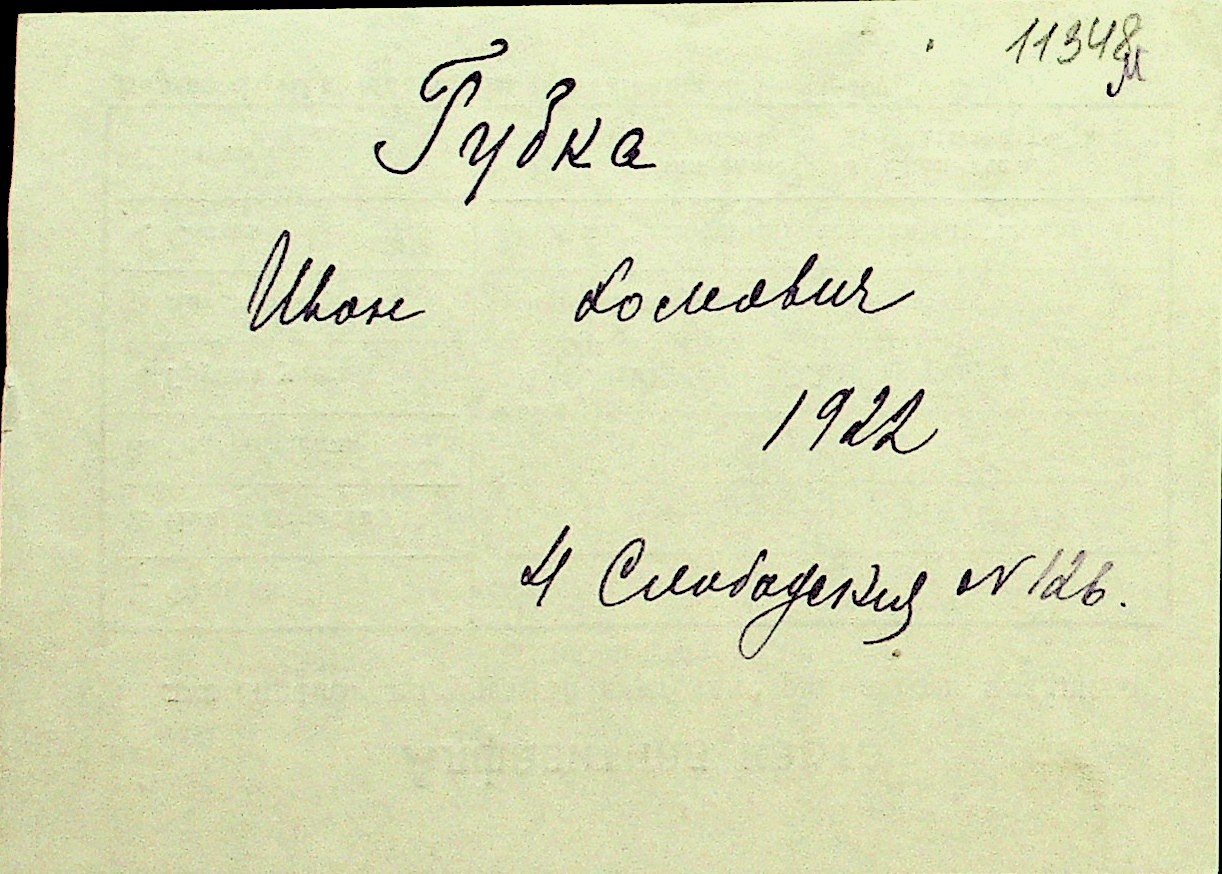 11348
м
Губка
Иван Хомович
1922
4 Слободская N 126.